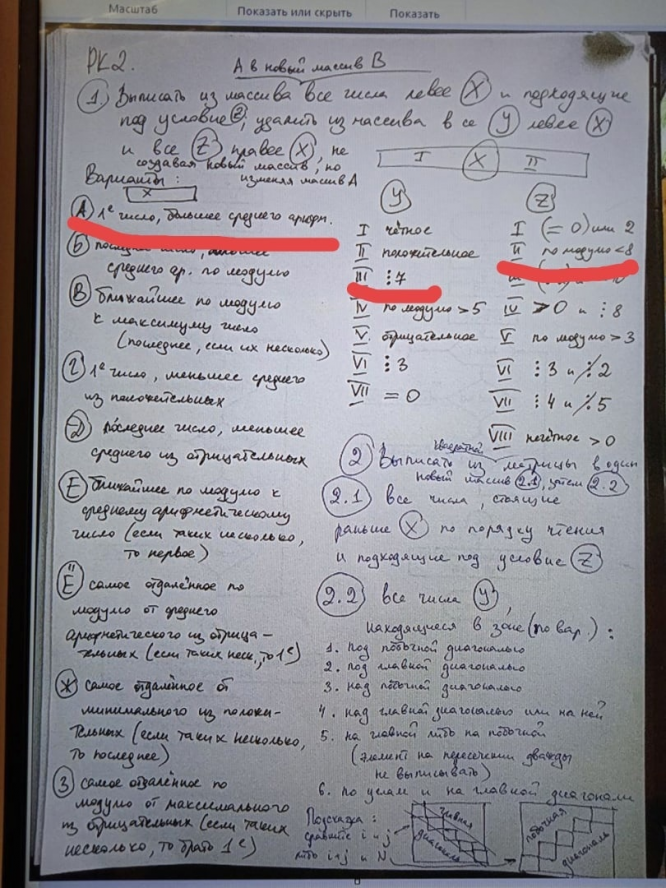 Масштаб
Показать или скрыть
Показать
РК2.
А в новый массив В
1 Выписать из массива все числа левее X и подходящие
под условие Z, удалить из массива все Y левее X
и все Z правее X, не
создавая новый массив, но
изменяя массив А
I X II
Варианты:
X
А 1е число, большее среднего арифм.
Б последнее число,
среднего ар. по модулю
В ближайшее по модулю
к максимуму число
(последнее, если их несколько)
Г 1е число, меньшее среднего
из положительных
Д последнее число, меньшее
среднего из отрицательных
Е ближайшее по модулю к
среднему арифметическому
число (если таких несколько,
то первое)
Ё самое отдалённое по
модулю от среднего
арифметического из отрица-
тельных (если таких неск., то 1е)
Ж самое отдалённое от
минимального из положи-
тельных (если таких несколько,
то последнее)
З самое отдалённое по
модулю от максимального
из отрицательных (если таких
несколько, то брать 1е)
Y
I чётное
II положительное
III ⋮7
IV по модулю > 5
V отрицательное
VI ⋮3
VII = 0
Z
I (= 0) или 2
II по модулю < 8
III
IV > 0 и ⋮8
V по модулю > 3
VI ⋮3 и ⋮̸2
VII ⋮4 и ⋮̸5
VIII нечётное > 0
2 Выписать из квадратной матрицы в один
новый массив 2.1, затем 2.2
2.1 все числа, стоящие
раньше X по порядку чтения
и подходящие под условие Z
2.2 все числа Y,
находящиеся в зоне (по вар.):
1. под побочной диагональю
2. под главной диагональю
3. над побочной диагональю
4. над главной диагональю или на ней
5. на главной либо на побочной
(элемент на пересечении дважды
не выписывать)
6. по углам и на главной диагонали
Подсказка:
сравните i и j
либо i+j и N
главная
диагональ
побочная
диагональ